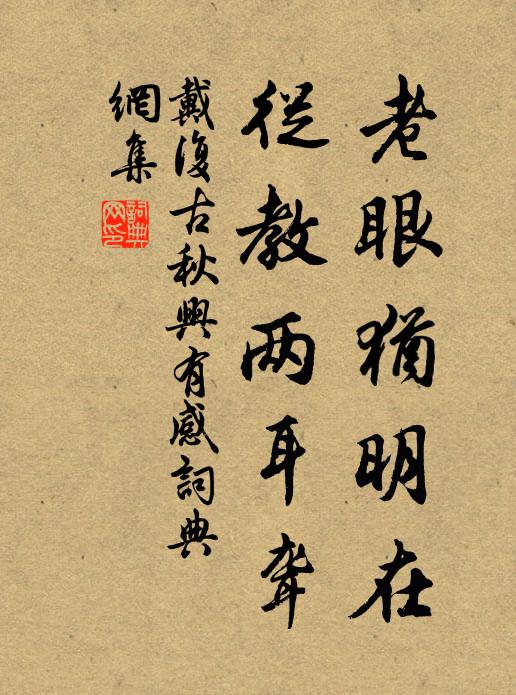 老眼猶明在
從教两耳聋
戴復古秋興有感詞典
網集
詞典
网印